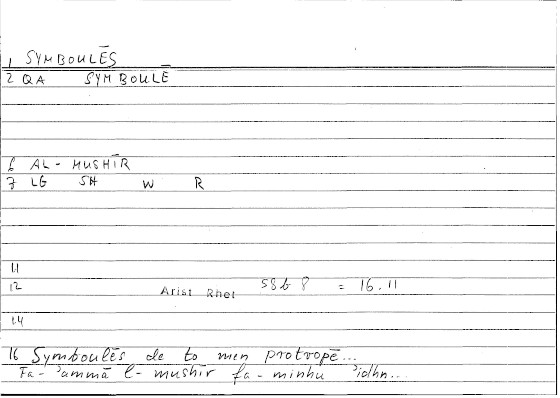 1 SYMBOULĒS
2 QA SYMBOULĒ
6 AL-MUSHĪR
7 LG SH W R
11
12 Arist Rhet 58b 8 = 16.11
14
16 Symboulēs de to men protropē...
Fa-ʾammā l-mushīr fa-minhu ʾidhn..